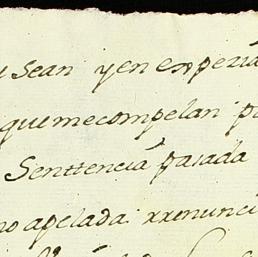 sean y en expecia
que me compelan p
Senttencia pasada
no apelada: rrenunci